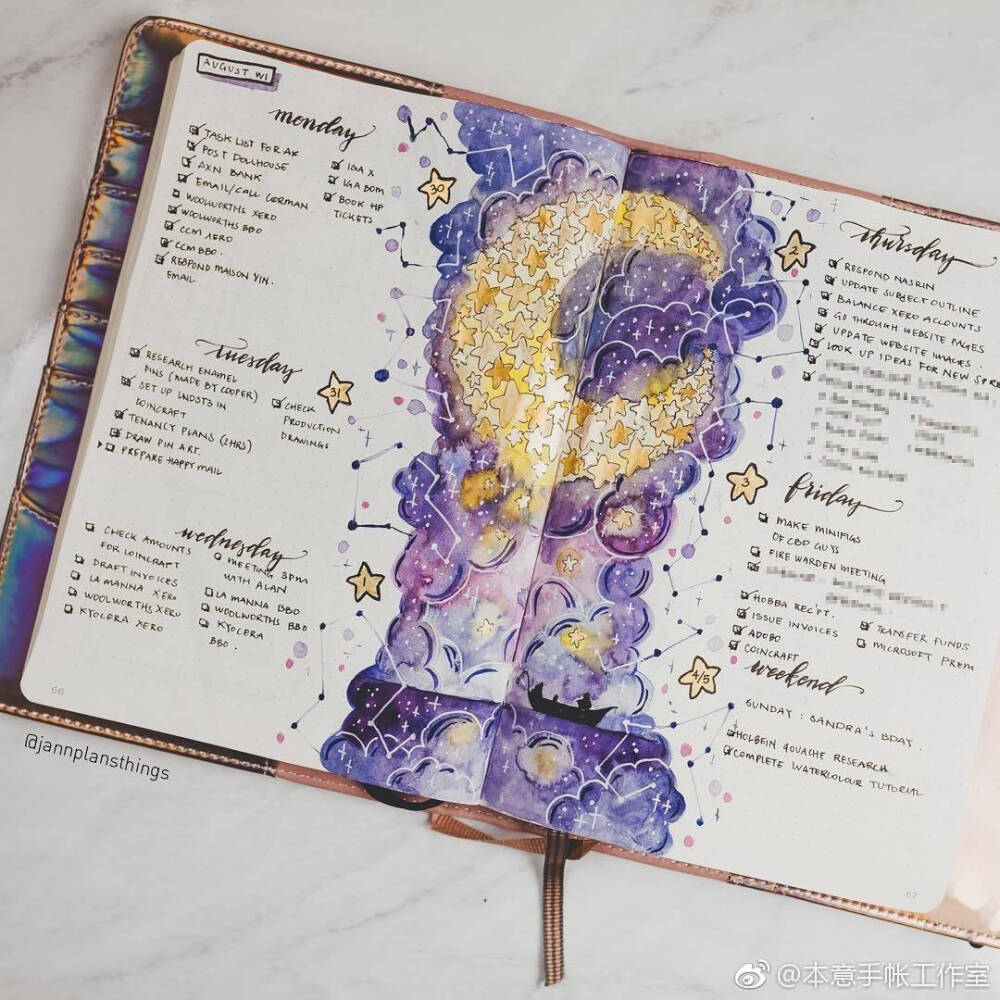 AUGUST W1
monday
30
TASK LIST FOR AK
POST DOLLHOUSE
AXN BANK
EMAIL/CALL GORMAN
WOOLWORTHS XERO
WOOLWORTHS BBO
CCM XERO
CCM BBO.
RESPOND MAISON YIN.
EMAIL
IGA X
IGA BOM
BOOK HP
TICKETS
tuesday
31
RESEARCH ENAMEL
PINS (MADE BY COOPER)
SET UP LNDST3 IN
LOINCRAFT
TENANCY PLANS (2HRS)
DRAW PIN ART.
PREPARE HAPPY MAIL
CHECK
PRODUCTION
DRAWINGS
wednesday
1
CHECK AMOUNTS
FOR LOINCRAFT
DRAFT INVOICES
LA MANNA XERO
WOOLWORTHS XERO
KYOCERA XERO
MEETING 3PM
WITH ALAN
LA MANNA BBO
WOOLWORTHS BBO
KYOCERA
BBO.
66
@jannplansthings
thursday
2
RESPOND NASRIN
UPDATE SUBJECT OUTLINE
BALANCE XERO ACCOUNTS
GO THROUGH WEBSITE PAGES
UPDATE WEBSITE IMAGES.
LOOK UP IDEAS FOR NEW
friday
3
MAKE MINIFIGS
OF CBP GUYS
FIRE WARDEN MEETING
HOBBA REC'PT.
ISSUE INVOICES
ADOBO
COINCRAFT
TRANSFER FUNDS
MICROSOFT PREM
weekend
4/5
SUNDAY: SANDRA'S BDAY.
HOLBEIN GOUACHE RESEARCH
COMPLETE WATERCOLOUR TUTORIAL
67
@本意手帐工作室